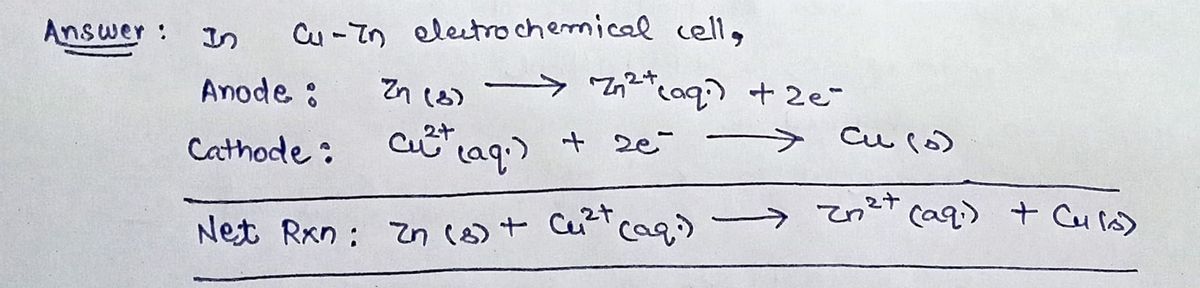 Answer : In Cu-Zn electrochemical cell,
Anode : Zn (s) ⟶ Zn²⁺(aq.) + 2e⁻
Cathode : Cu²⁺(aq.) + 2e⁻ ⟶ Cu (s)
Net Rxn : Zn (s) + Cu²⁺(aq.) ⟶ Zn²⁺ (aq.) + Cu (s)